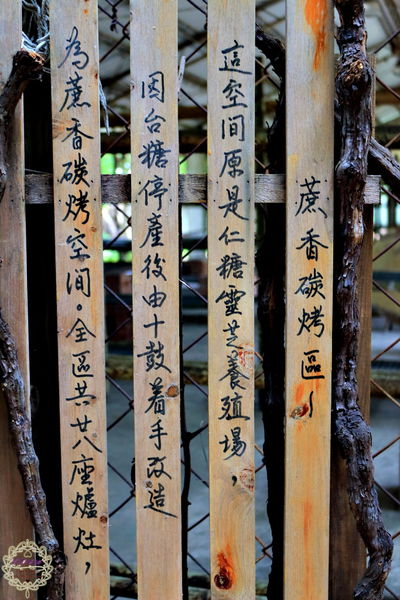 蔗香碳烤區~
這空間原是仁糖靈芝養殖場,
因台糖停產後由十鼓着手改造
為蔗香碳烤空間。全區共廿八座爐灶,